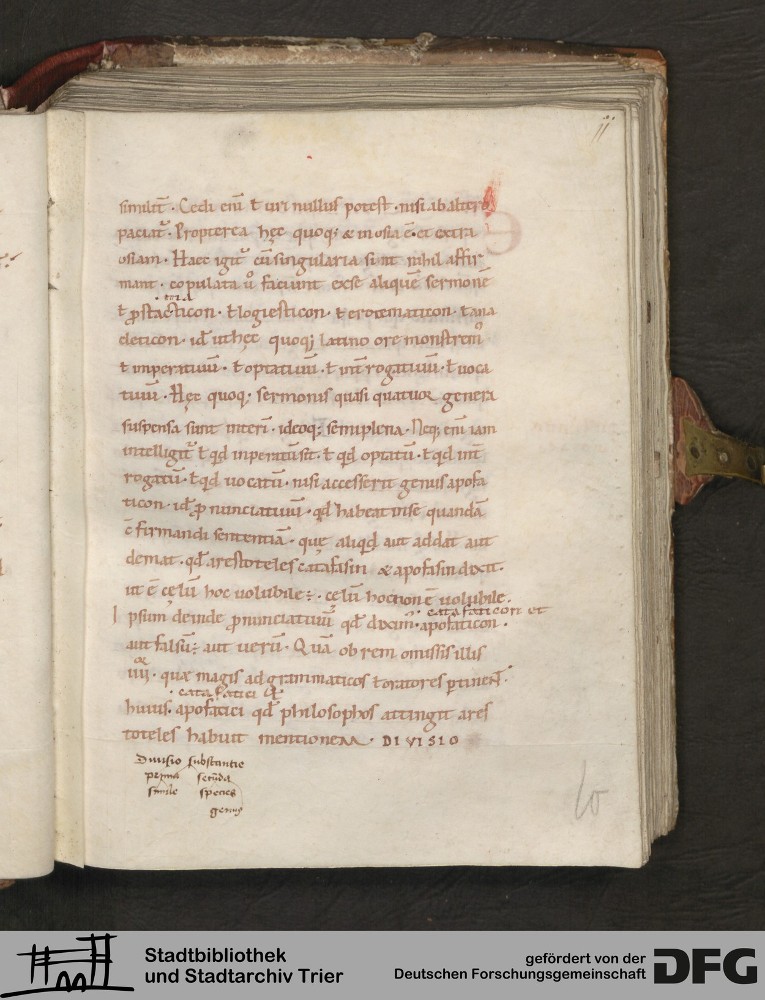 ii
similit̄ · Cedi eni᷑ ł uri nullus potest · nisi ab altero
paciat᷑ · Propterea hęc quoq; & in osia ē · et extra
osiam · Haec igit᷑ cū singularia sunt nihil affir
mant · copulata ů faciunt ex se aliquē sermonē
ł p̱stacticon · ł logiesticon · ł erotematicon · ł ana
cleticon · id ut hęc quoq; latino ore monstrem᷒
ł imperatiuū · ł optatiuū · ł int̄rogatiuū · ł uoca
tiuū · Hęc quoq; sermonis quasi quatuor genera
suspensa sunt interi · ideoq; semiplena · Neq; enī iam
intelligit᷑ ł qd̄ imperatū sit · ł qd̄ optatū · ł qd̄ int̄
rogatū · ł qd̄ uocatū · nisi accesserit genus apofa
ticon · id p̱nunciatiuū · qd̄ habeat in se quandā
c̄firmandi sententiā · quę aliqd̄ aut addat aut
demat · qd̄ arestoteles catafasin & apofasin dixit ·
ut ē cęlū hoc uolubile : · cęlū hoc non ē uolubile .
catafaticon et
Ipsum deinde p̱nunciatiuū qd̄ dixim᷒ · apofaticon ·
aut falsū : aut uerū · Quā ob rem omissis illis
or
iiii · quae magis ad grammaticos ł oratores ptinent ·
· catafatici &
huius · apofatici qd̄ philosophos attingit ares
toteles habuit mentionem · DIVISIO
Diuisio substantie
prima secūda
simile species
genus
10
Stadtbibliothek
und Stadtarchiv Trier
gefördert von der
Deutschen Forschungsgemeinschaft
DFG